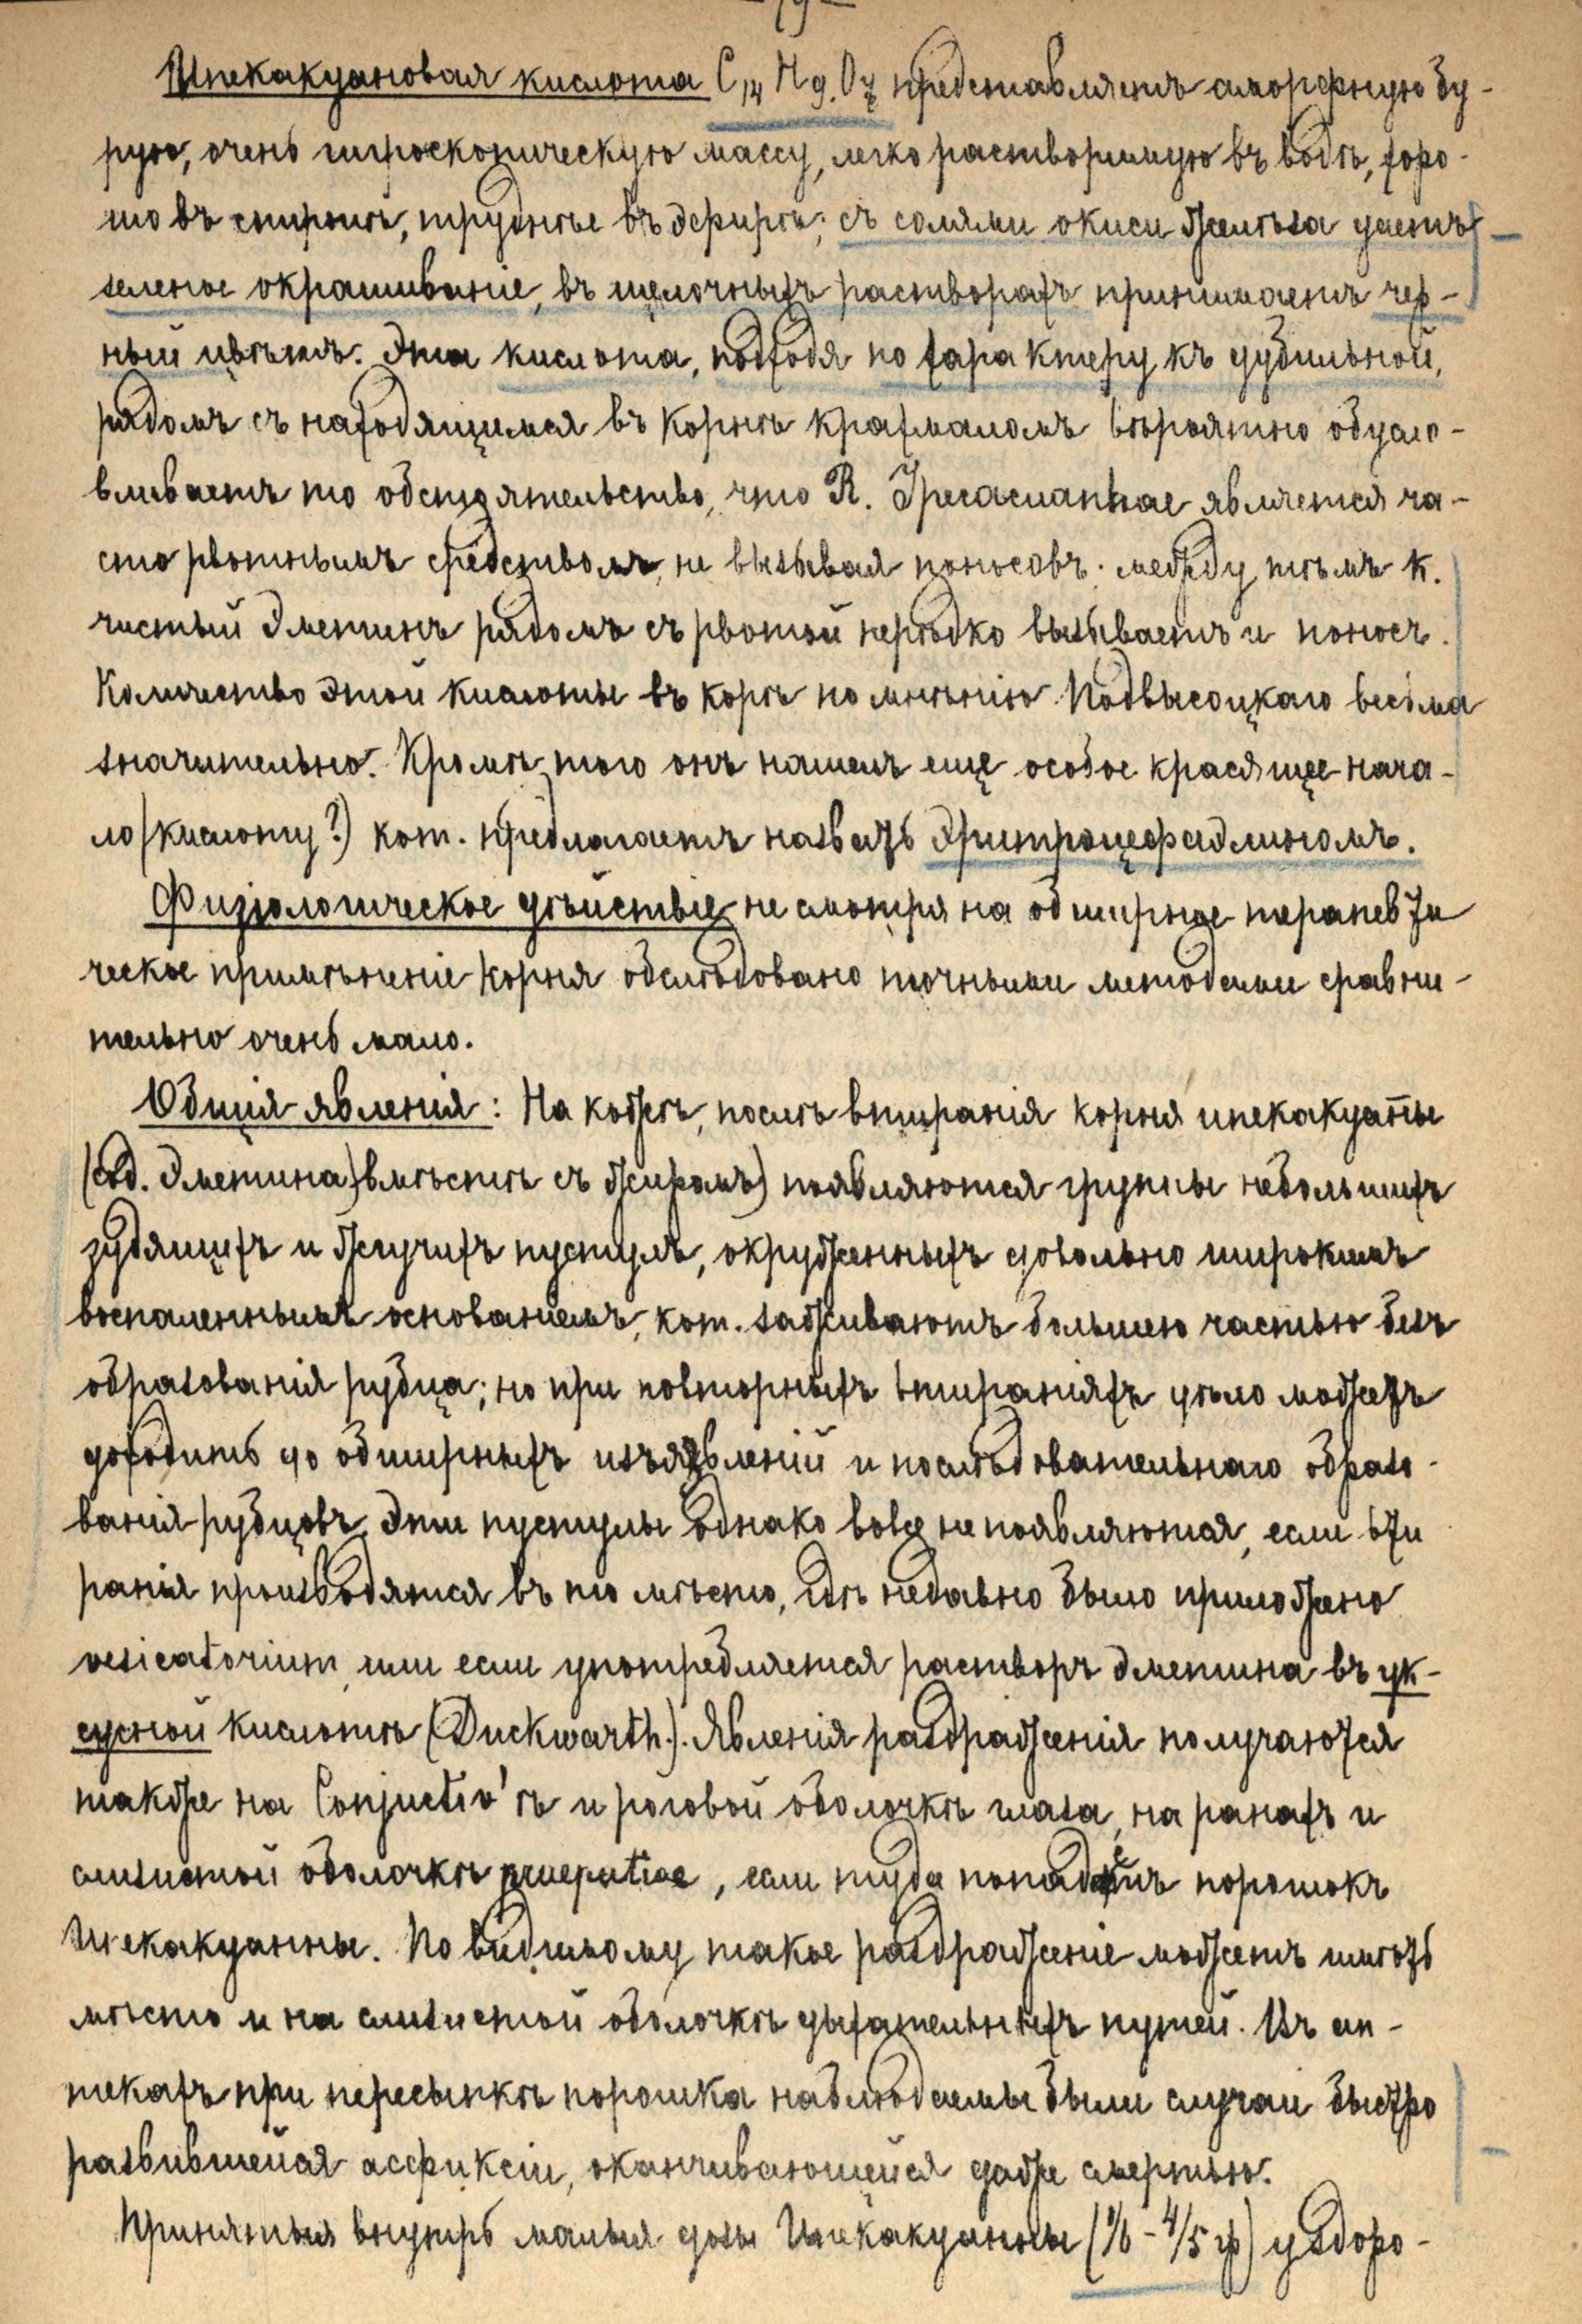 — 79 —
Ипекакуановая кислота C₁₄ H₉. O₇ представляетъ аморфную бу-
рую, очень гигроскопическую массу, легко растворимую въ водѣ, хоро-
шо въ спиртѣ, труднѣе въ эфирѣ; съ солями окиси желѣза даетъ
зеленое окрашиваніе, въ щелочныхъ растворахъ принимаетъ чер-
ный цвѣтъ. Эта кислота, подходя по характеру къ дубильной,
рядомъ съ находящимся въ корнѣ крахмаломъ вѣроятно обусло-
вливаетъ то обстоятельство, что R. Ipecacuanhae является ча-
сто рвотнымъ средствомъ, не вызывая поносовъ. между тѣмъ к.
чистый Эметинъ рядомъ съ рвотой нерѣдко вызываетъ и поносъ.
Количество этой кислоты въ корѣ по мнѣнію Подвысоцкаго весьма
значительно. Кромѣ того онъ нашелъ еще особое красящее нача-
ло (кислоту?) кот. предлагаетъ назвать Эритроцефаэлиномъ.
Физіологическое дѣйствіе не смотря на обширное терапевти
ческое примѣненіе корня обслѣдовано точными методами сравни-
тельно очень мало.
Общія явленія: На кожѣ, послѣ втиранія корня ипекакуаны
(сод. Эметина) вмѣстѣ съ жиромъ) появляются группы небольшихъ
зудящихъ и жгучихъ пустулъ, окруженныхъ довольно широкимъ
воспаленнымъ основаніемъ, кот. заживаютъ большею частью безъ
образованія рубца; но при повторныхъ втираніяхъ дѣло можетъ
доходить до обширныхъ изъязвленій и послѣдовательнаго образо-
ванія рубцовъ. Эти пустулы однако вовсе не появляются, если вти
ранія производятся въ то мѣсто, гдѣ недавно было приложено
vesicatorium, или если употребляется растворъ эметина въ ук-
сусной кислотѣ (Duckwarth.). Явленія раздраженія получаются
также на Conjuctiv'ѣ и роговой оболочкѣ глаза, на ранахъ и
слизистой оболочкѣ, если туда попадетъ порошокъ
Ипекакуанны. По видимому такое раздраженіе можетъ имѣть
мѣсто и на слизистой оболочкѣ дыхательныхъ путей. Въ ап-
текахъ при пересыпкѣ порошка наблюдаемы были случаи быстро
развившейся ассфиксіи, оканчивающейся даже смертью.
Принятыя внутрь малыя дозы Ипекакуанны (1/6 – 4/5 гр) у здоро-